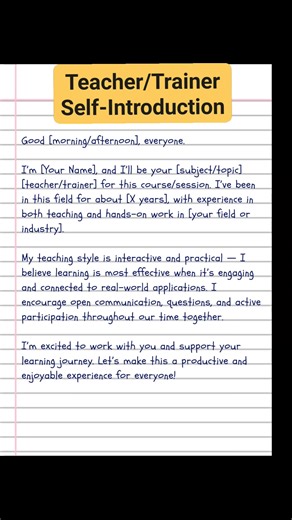 Teacher/Trainer
Self-Introduction
Good [morning/afternoon], everyone.
I'm [Your Name], and I'll be your [subject/topic]
[teacher/trainer] for this course/session. I've been
in this field for about [X years], with experience in
both teaching and hands-on work in [your field or
industry].
My teaching style is interactive and practical — I
believe learning is most effective when it's engaging
and connected to real-world applications. I
encourage open communication, questions, and active
participation throughout our time together.
I'm excited to work with you and support your
learning journey. Let's make this a productive and
enjoyable experience for everyone!